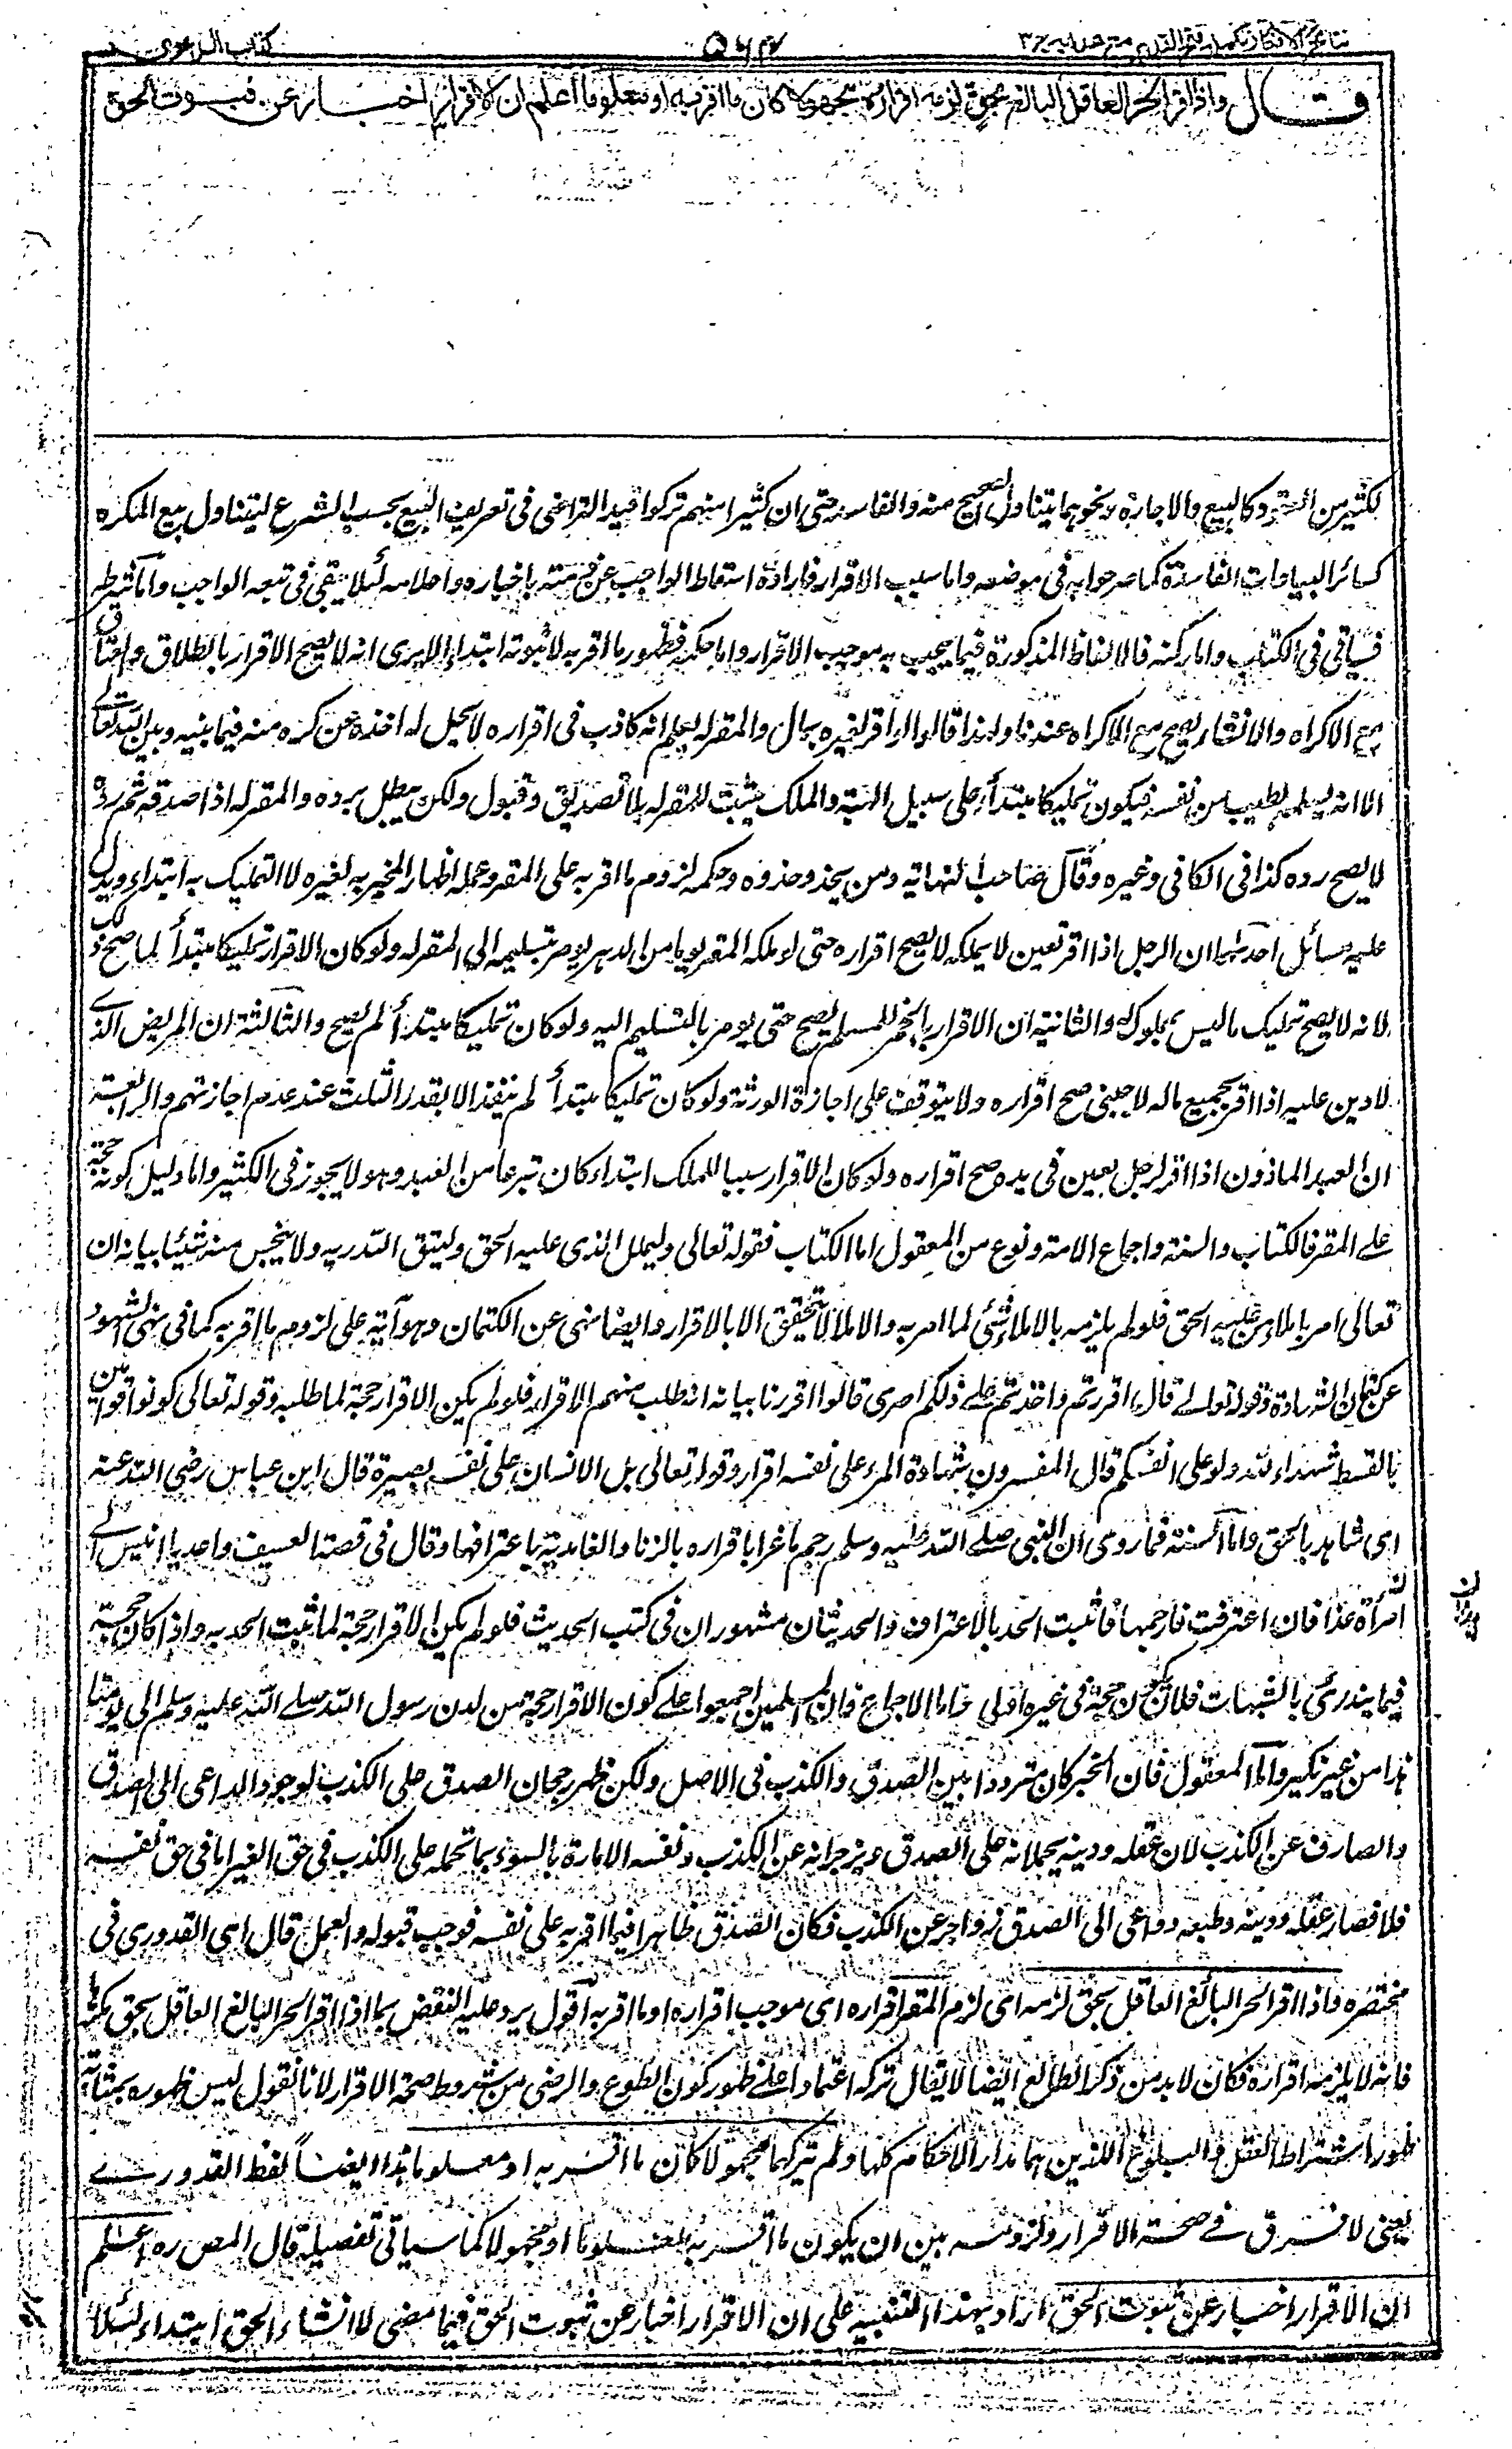 نتائج الافكار تكملة فتح القدير مع هدايه ج٣
كتاب الدعوى
قال واذا اقر الحر العاقل البالغ بحق لزمه اقراره مجهولا كان ما اقر به او معلوما اعلم ان الاقرار اخبار عن ثبوت الحق
لكثير من العقود كالبيع والاجارة ونحوهما يتناول الصحيح منه والفاسد حتى ان كثيرا منهم تركوا قيد التراضى فى تعريف البيع بحسب الشرع ليتناول بيع المكره
كسائر البياعات الفاسدة كما صرحوا به فى موضعه واما سبب الاقرار فارادة اسقاط الواجب عن ذمته باخباره واعلامه لئلا يبقى فى تبعه الواجب واما شرطه
فسياتى فى الكتاب واما ركنه فالالفاظ المذكورة فيما يجب به موجب الاقرار واما حكمه فظهور ما اقر به لا ثبوته ابتداء الا يرى انه لا يصح الاقرار بالطلاق والعتاق
مع الاكراه والانشاء يصح مع الاكراه عندنا ولهذا قالوا لو اقر لغيره بمال والمقر له يعلم انه كاذب فى اقراره لا يحل له اخذه عن كره منه فيما بينه وبين الله تعالى
الا انه يسلمه بطيب من نفسه فيكون تمليكا مبتدأ على سبيل الهبة والملك يثبت للمقر له بلا تصديق وقبول ولكن يبطل برده والمقر له اذا صدقه ثم رده
لا يصح رده كذا فى الكافى وغيره وقال صاحب النهاية ومن يحذو حذوه وحكمه لزوم ما اقر به على المقر وعمله اظهار المخبر به لغيره لا التمليك به ابتداء ويدل
عليه مسائل احدها ان الرجل اذا اقر بعين لا يملكه يصح اقراره حتى لو ملكه المقر يوما من الدهر يؤمر بتسليمه الى المقر له ولو كان الاقرار تمليكا مبتدأ لما صح ذلك
لانه لا يصح تمليك ما ليس بمملوك له والثانية ان الاقرار بالخمر للمسلم يصح حتى يؤمر بالتسليم اليه ولو كان تمليكا مبتدأ لم يصح والثالثة ان المريض الذى
لا دين عليه اذا اقر بجميع ماله لاجنبى صح اقراره ولا يتوقف على اجازة الورثة ولو كان تمليكا مبتدأ لم ينفذ الا بقدر الثلث عند عدم اجازتهم والرابعة
ان العبد الماذون اذا اقر لرجل بعين فى يده صح اقراره ولو كان الاقرار سببا للملك ابتداء كان تبرعا من العبد وهو لا يجوز فى الكثير واما دليل كونه حجة
على المقر فالكتاب والسنة واجماع الامة ونوع من المعقول اما الكتاب فقوله تعالى وليملل الذى عليه الحق وليتق الله ربه ولا يبخس منه شيئا بيانه ان
تعالى امر باملاء من عليه الحق فلو لم يلزمه بالاملاء شئى لما امر به والاملاء لا يتحقق الا بالاقرار وايضا نهى عن الكتمان وهو آية على لزوم ما اقر به كما فى نهى الشهود
عن كتمان الشهادة وقوله تعالى قال ءاقررتم واخذتم على ذلكم اصرى قالوا اقررنا بيانه انه طلب منهم الاقرار فلو لم يكن الاقرار حجة لما طلبه وقوله تعالى كونوا قوامين
بالقسط شهداء لله ولو على انفسكم قال المفسرون شهادة المرء على نفسه اقرار وقوله تعالى بل الانسان على نفسه بصيرة قال ابن عباس رضى الله عنه
اى شاهد بالحق واما السنة فما روى ان النبى صلى الله عليه وسلم رجم ماعزا باقراره بالزنا والغامدية باعترافها وقال فى قصة العسيف واغد يا انيس الى
امرأة هذا فان اعترفت فارجمها فاثبت الحد بالاعتراف والحديثان مشهوران فى كتب الحديث فلو لم يكن الاقرار حجة لما ثبت الحد به واذا كان حجة
فيما يندرئ بالشبهات فلان يكون حجة فى غيره اولى واما الاجماع فان المسلمين اجمعوا على كون الاقرار حجة من لدن رسول الله صلى الله عليه وسلم الى يومنا
هذا من غير نكير واما المعقول فان الخبر كان مترددا بين الصدق والكذب فى الاصل ولكن ظهر رجحان الصدق على الكذب لوجود الداعى الى الصدق
والصارف عن الكذب لان عقله ودينه يحملانه على الصدق ويزجرانه عن الكذب ونفسه الامارة بالسوء ربما تحمله على الكذب فى حق الغير اما فى حق نفسه
فلا فصار عقله ودينه وطبعه دواعى الى الصدق زواجر عن الكذب فكان الصدق ظاهرا فيما اقر به على نفسه فوجب قبوله والعمل قال اى القدورى فى
مختصره واذا اقر الحر البالغ العاقل بحق لزمه اى لزم المقر اقراره اى موجب اقراره او ما اقر به اقول يرد عليه النقض بما اذا اقر الحر البالغ العاقل بحق مكرها
فانه لا يلزمه اقراره فكان لا بد من ذكر الطائع ايضا لا يقال تركه اعتمادا على ظهور كون الطوع والرضى من شروط صحة الاقرار لانا نقول ليس ظهوره بمثابة
ظهور اشتراط العقل والبلوغ اللذين هما مدار الاحكام كلها ولم يتركهما مجهولا كان ما اقر به او معلوما هذا ايضا لفظ القدورى
يعنى لا فرق فى صحة الاقرار ولزومه بين ان يكون ما اقر به معلوما او مجهولا كما سياتى تفصيله قال المص ره اعلم
ان الاقرار اخبار عن ثبوت الحق اراد بهذا التنبيه على ان الاقرار اخبار عن ثبوت الحق فيما مضى لا انشاء الحق ابتداء لئلا